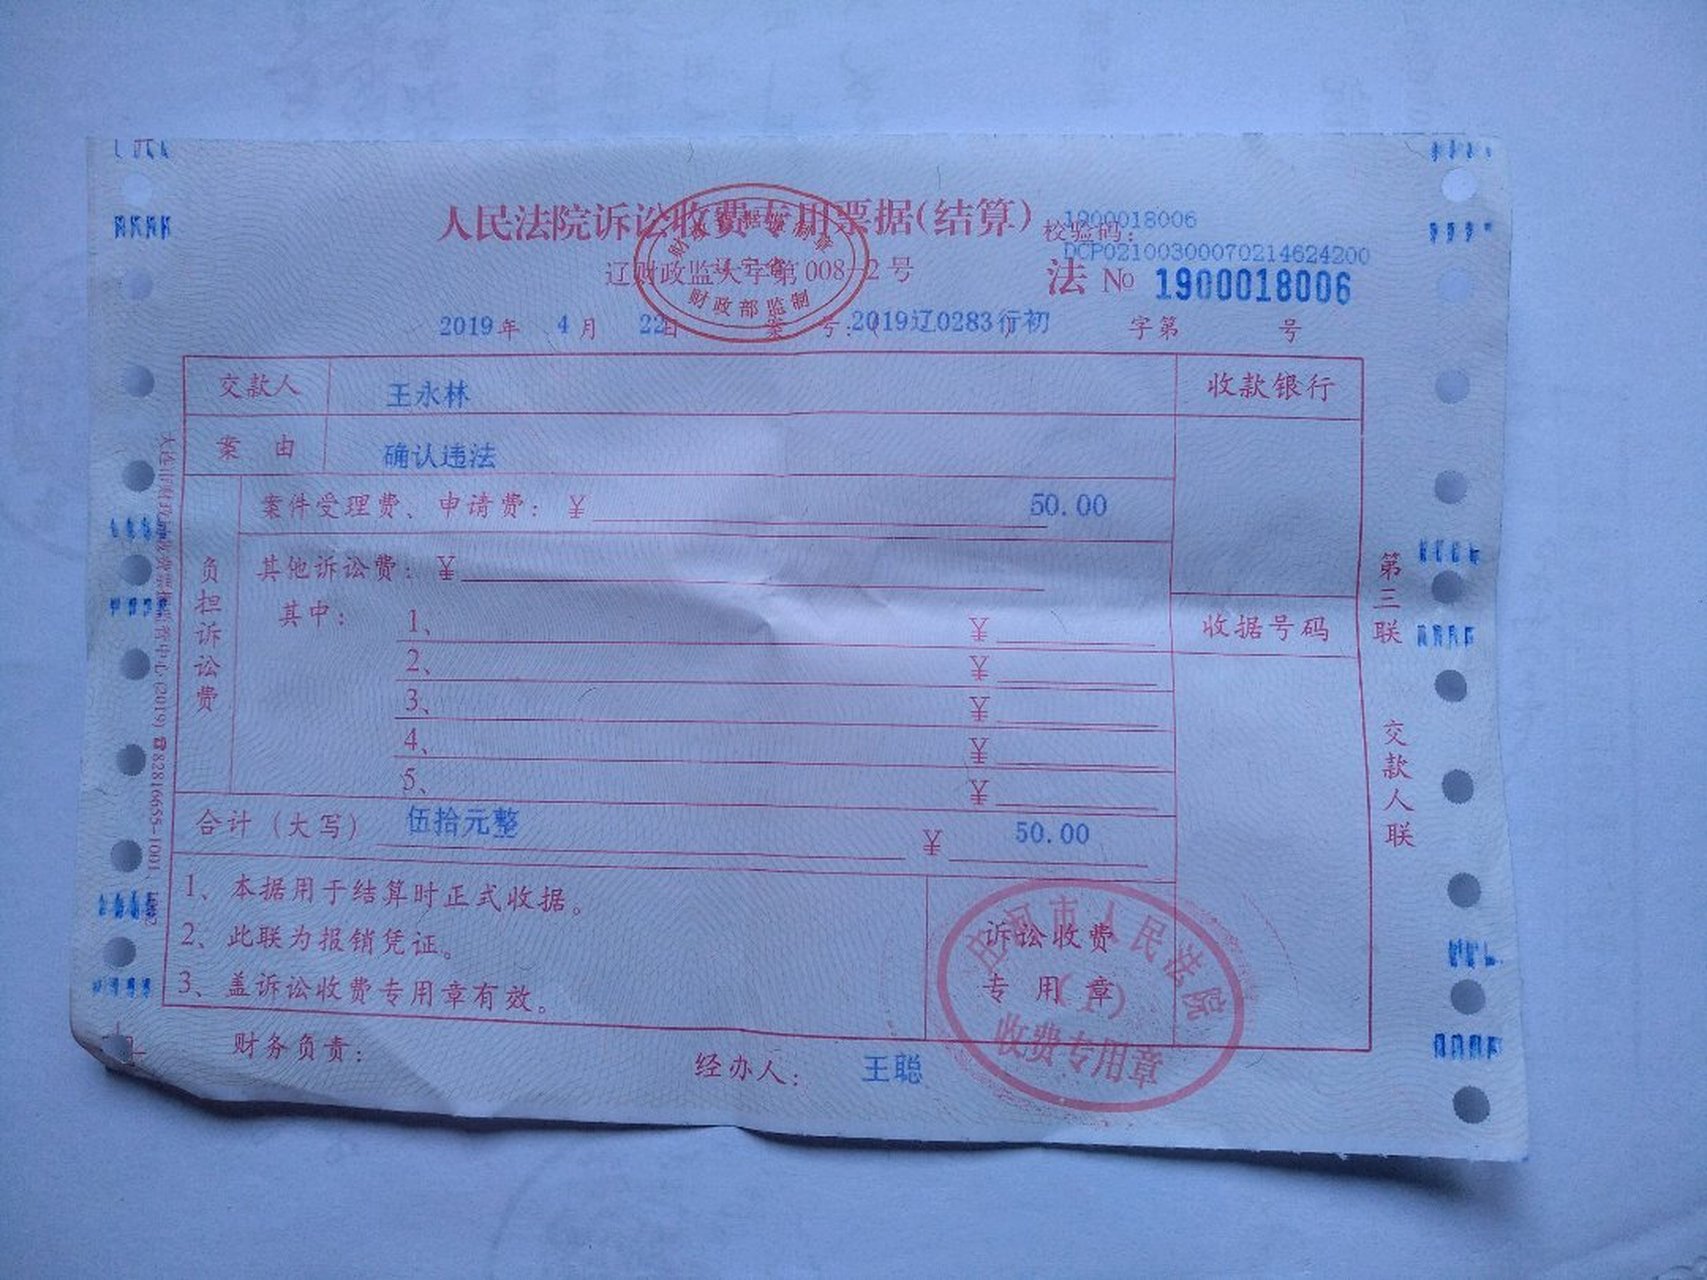 人民法院诉讼收费专用票据(结算)
1900018006
校验码:
DCP02100300070214624200
辽财政监大字第008-2号
法 No 1900018006
财政部监制
2019年 4月 22日 案号:(2019辽0283行初) 字第 号
交款人 王永林 收款银行
案由 确认违法
案件受理费、申请费: ¥ 50.00
负担诉讼费
其他诉讼费: ¥
其中:
1、 ¥
收据号码
2、 ¥
3、 ¥
4、 ¥
5、 ¥
合计(大写) 伍拾元整 ¥ 50.00
1、本据用于结算时正式收据。
2、此联为报销凭证。
3、盖诉讼收费专用章有效。
诉讼收费
专用章
庄河市人民法院
(1)
收费专用章
财务负责:
经办人: 王聪
第三联
交款人联
(2019) ☎82816655-1001